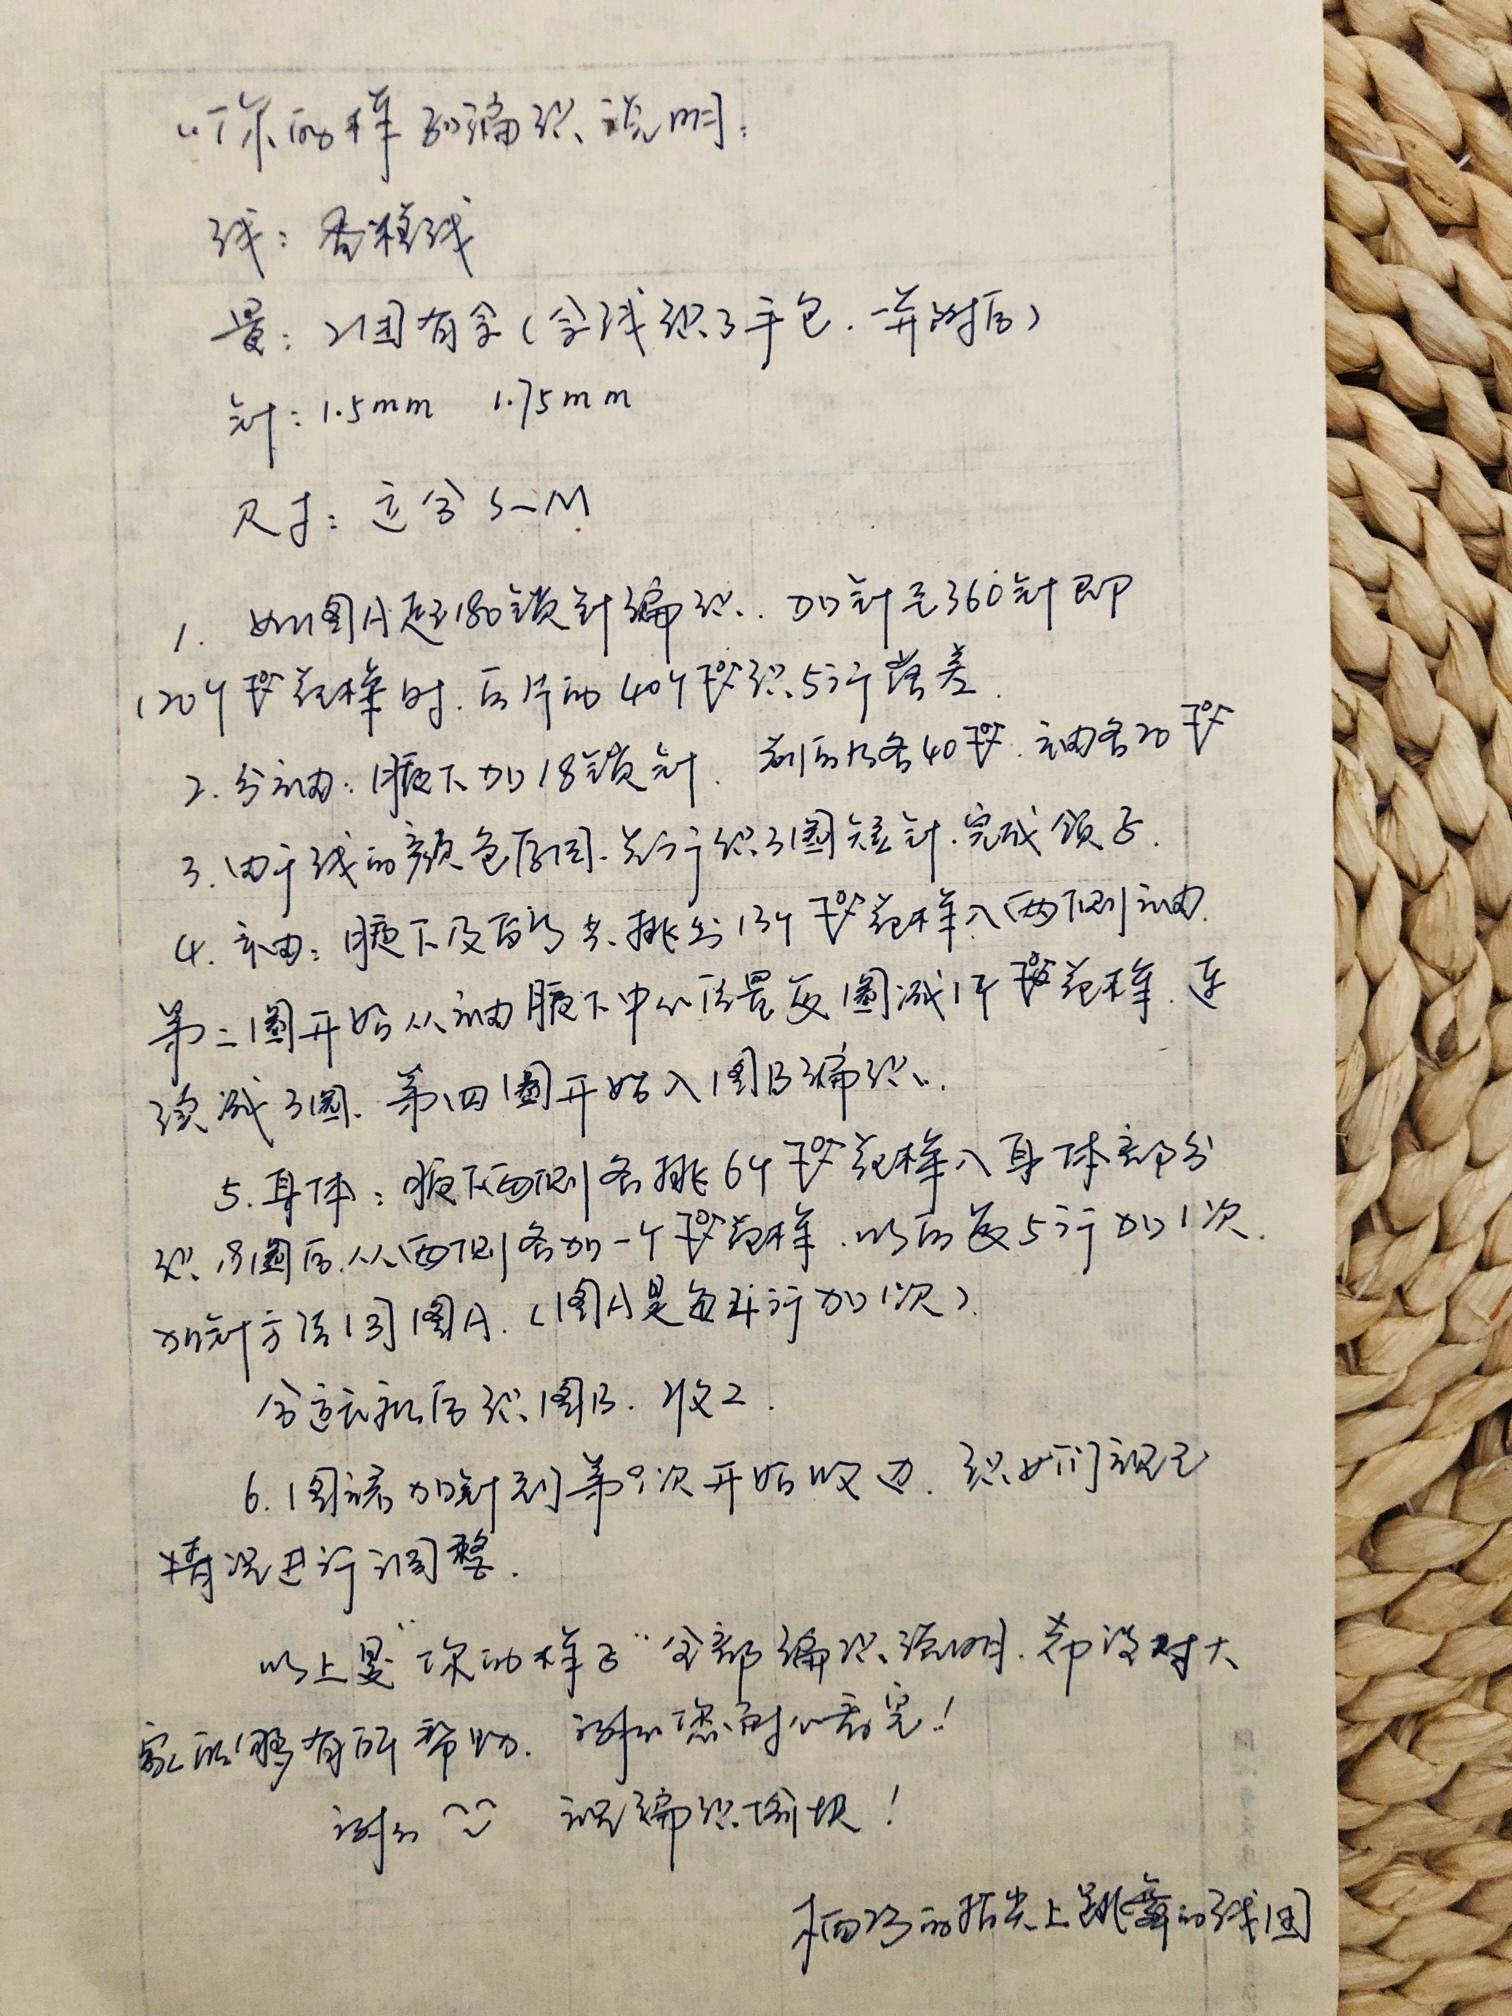 “你的样子编织说明：
线：香槟线
量：2团有余（余线织了手包．一并附后）
针：1.5mm 1.75mm
尺寸：适合 S－M
1. 如图A起180锁针编织．加针至360针即
120个 花样时．后片的40个 织5行落差．
2. 分袖：腋下加18锁针．前后片各40 ．袖各20
3. 由于线的颜色 ．先行织3圈短针．完成领子．
4. 袖：腋下及 共挑出13个 花样入两侧袖．
第二圈开始从袖腋下中心位置每圈减1个 花样．连
续减3圈．第四圈开始入图B编织．
5. 身体：腋下两侧各挑6个 花样入身体部分
织8圈后．从两侧各加一个 花样．以后每5行加1次．
加针方法同图A．（图A是每 行加1次）
分 后织图B．收工．
6. 图 加针到第9次开始收边．织女们视己
情况进行调整．
以上是“你的样子”全部编织说明．希望对大
家能够有所帮助．谢谢您耐心看完！
谢谢 祝编织愉快！
的指尖上跳舞的线团